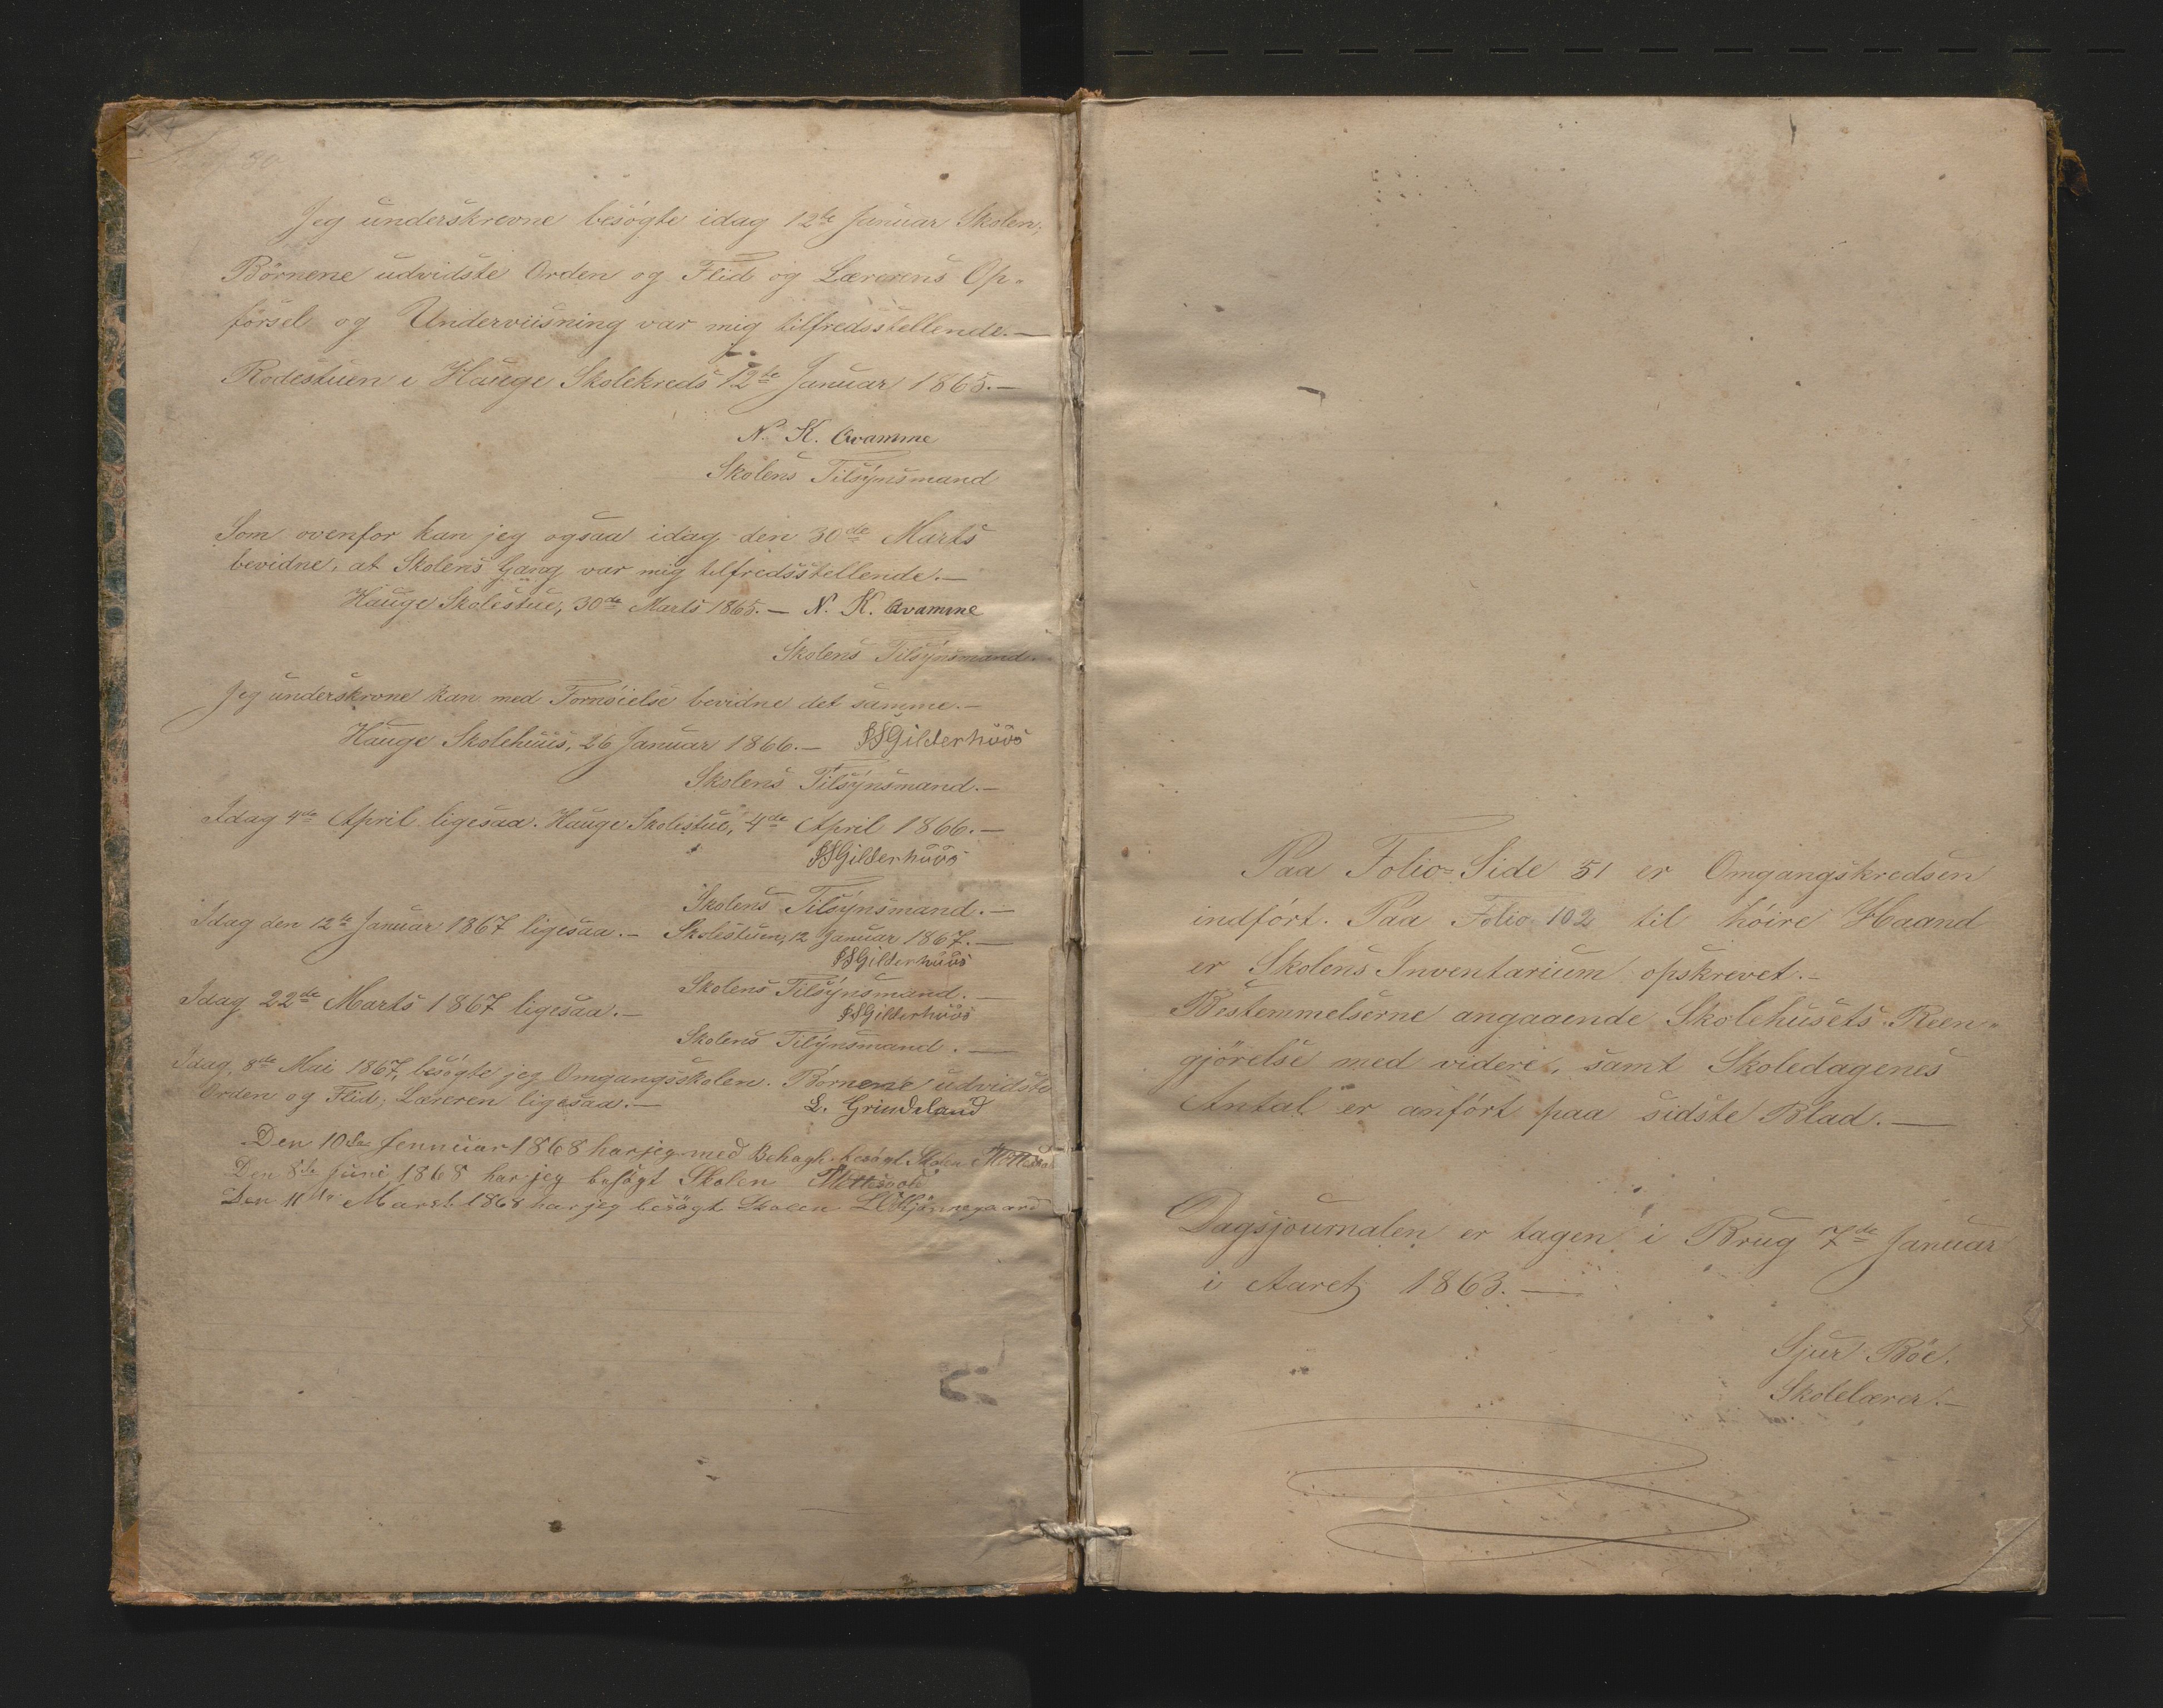 Jeg underskrevne besögte idag 12te Januar Skolen,
Börnene udvidste Orden og Flid og Lærerens Op-
försel og Underviisning var mig tilfredsstellende.—
Rodestuen i Hauge Skolekreds 12te Januar 1865.—
N. K. Qvamme
Skolens Tilsynsmand
Som ovenfor kan jeg ogsaa idag den 30de Marts
bevidne, at Skolens Gang var mig tilfredsstellende.—
Hauge Skolestue, 30de Marts 1865.— N. K. Qvamme
Skolens Tilsynsmand.
Jeg underskrevne kan med Fornöielse bevidne det samme.—
Hauge Skolehuus, 26 Januar 1866.— SSGilderhuus
Skolens Tilsynsmand.—
Idag 4de April ligesaa. Hauge Skolestue, 4de April 1866.—
SSGilderhuus
Skolens Tilsynsmand.—
Idag den 12te Januar 1867 ligesaa.— Skolestuen, 12 Januar 1867.—
SSGilderhuus
Skolens Tilsynsmand.—
Idag 22de Marts 1867 ligesaa.—
SSGilderhuus
Skolens Tilynsmand.—
Idag, 8de Mai 1867, besögte jeg Omgangsskolen. Börnene udvidste
Orden og Flid; Læreren ligesaa.— L. Grindeland
Den 10de Jennuar 1868 har jeg med Behagh besögt Skolen
Den 8de Juni 1868 har jeg besögt Skolen
Den 11te Marst 1868 har jeg besögt Skolen
Paa Folio-Side 51 er Omgangskredsen
indfört. Paa Folio 102 til höire Haand
er Skolens Inventarium opskrevet.—
Bestemmelserne angaaende Skolehusets Reen-
gjörelse med videre, samt Skoledagenes
Antal er anfört paa sidste Blad.—
Dagsjournalen er tagen i Brug 7de Januar
i Aaret 1863.—
Sjur Böe.
Skolelærer.—